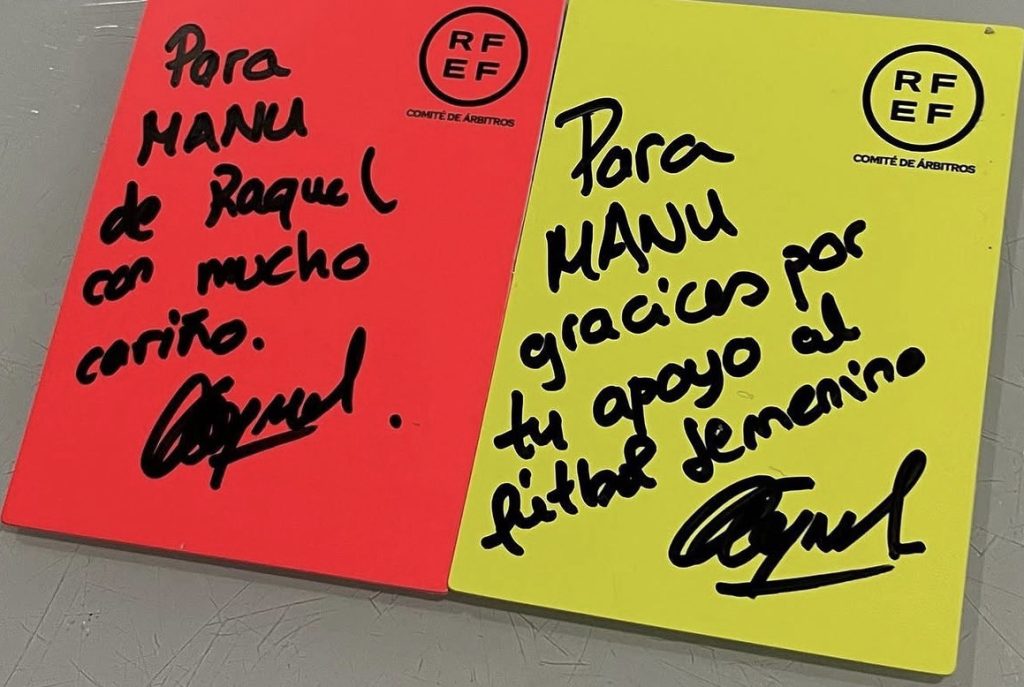 RF
EF
COMITÉ DE ÁRBITROS
Para
MANU
de Raquel
con mucho
cariño.
RF
EF
COMITÉ DE ÁRBITROS
Para
MANU
gracias por
tu apoyo al
fútbol femenino